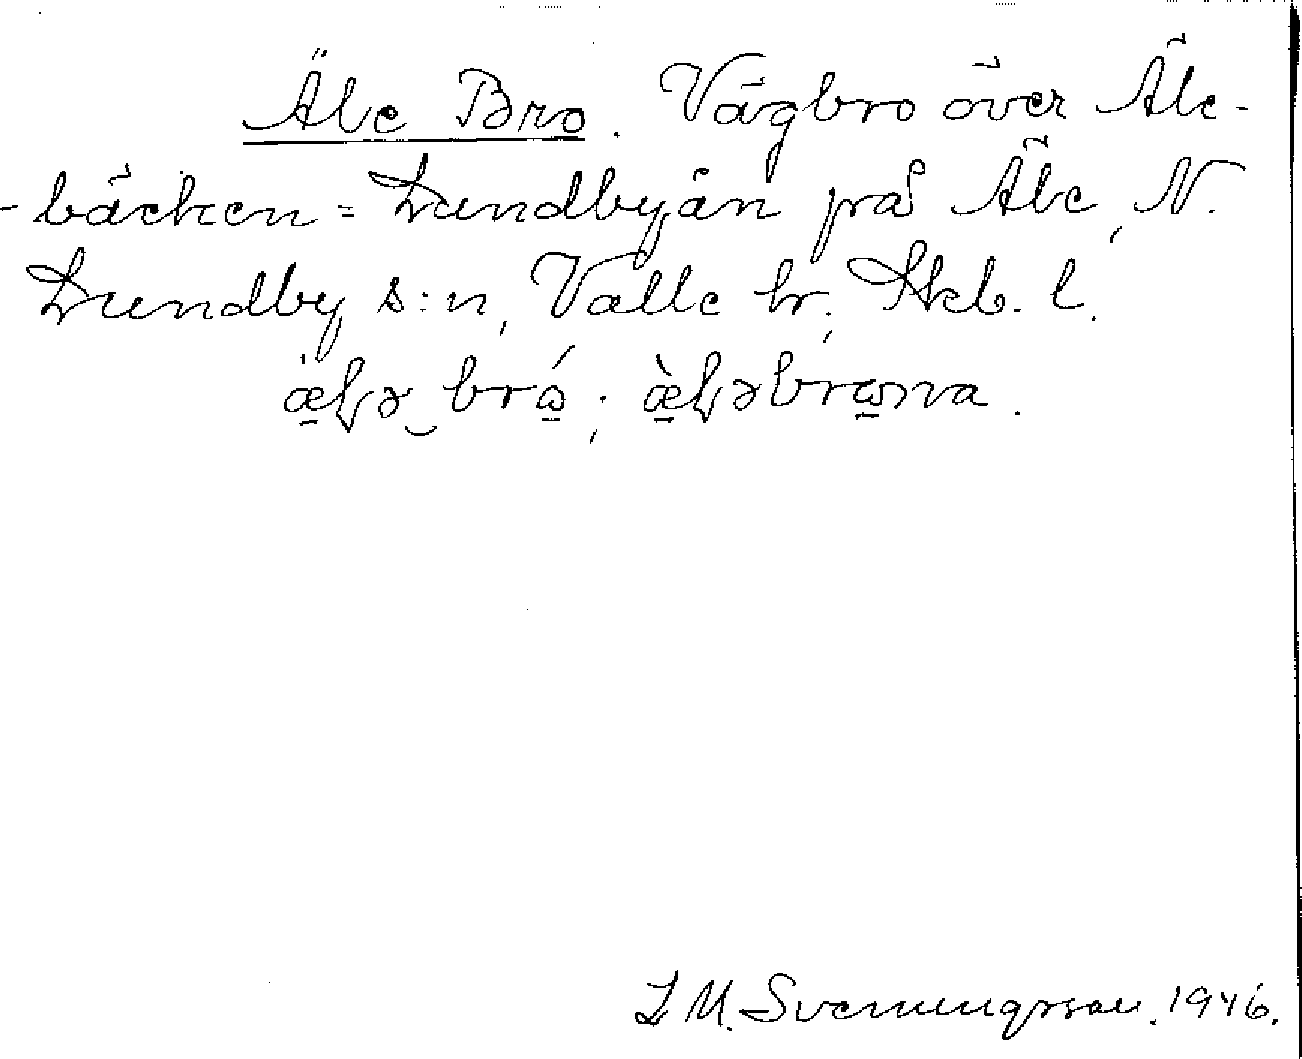 Äle Bro. Vägbro över Äle-
-bäcken = Lundbyån på Äle, N.
Lundby s:n, Valle hr, Skb. l.
brɷ́;
S. M. Svenungsson. 1946.